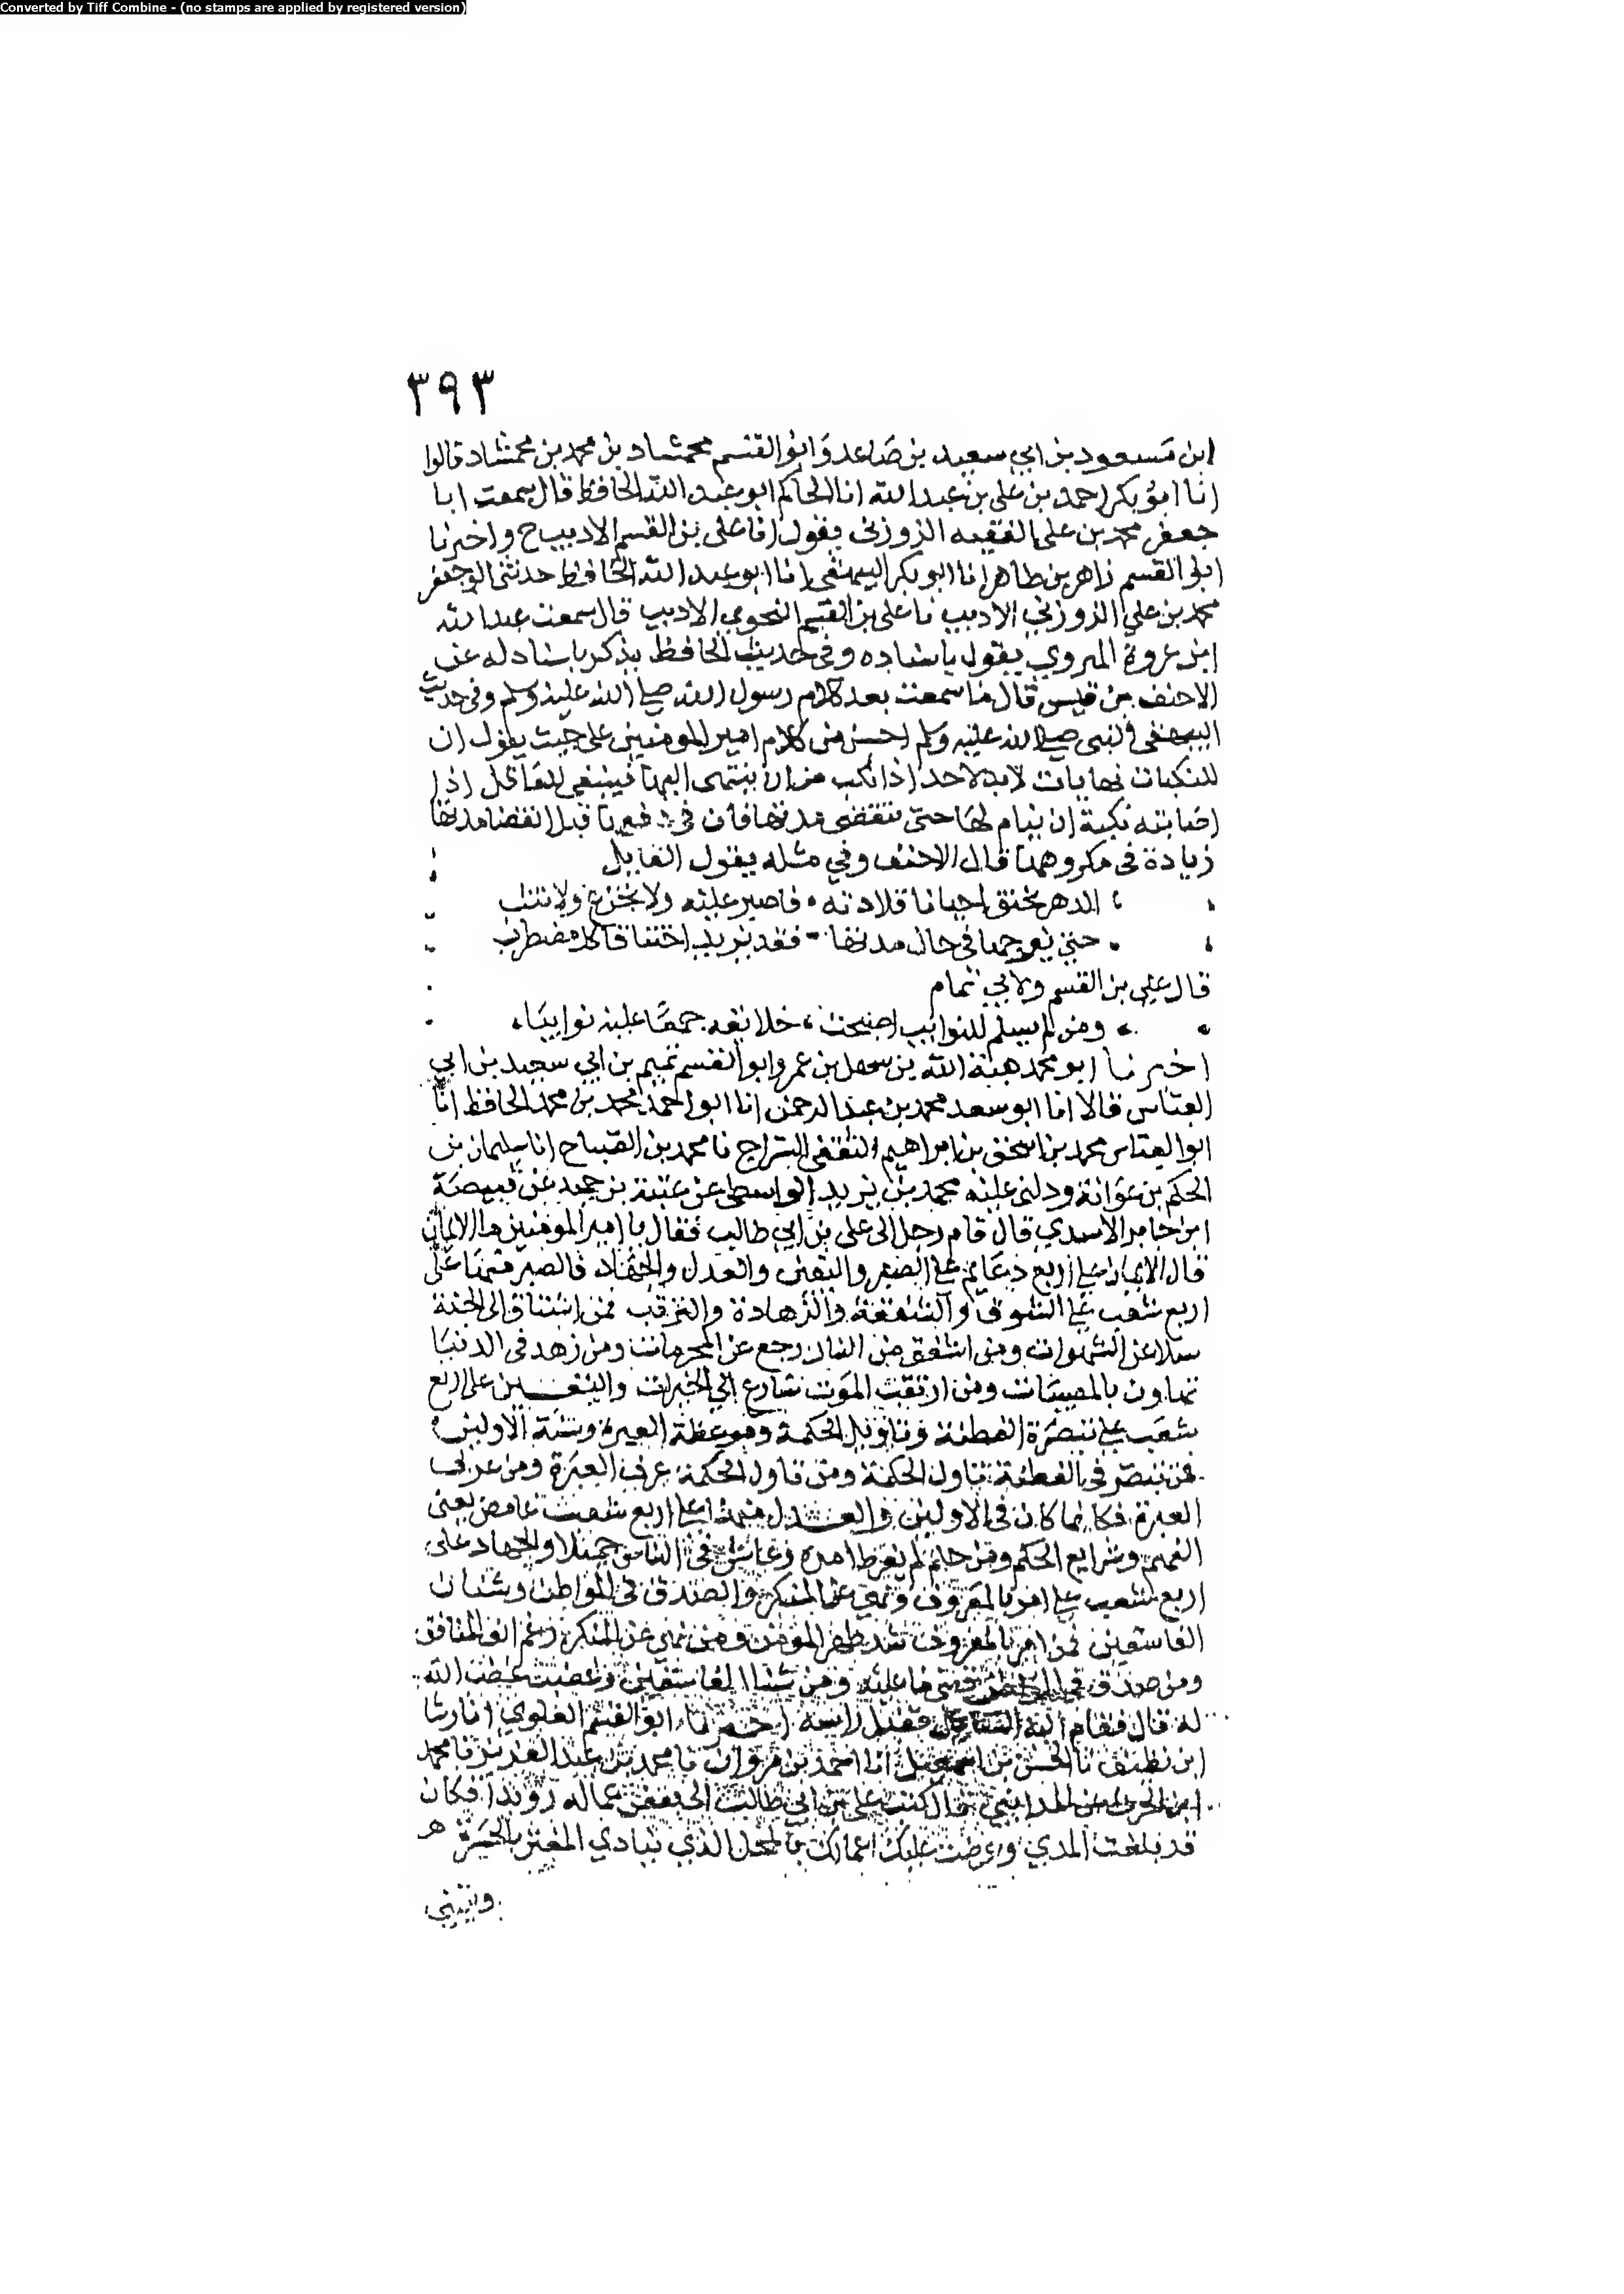 Converted by Tiff Combine - (no stamps are applied by registered version)
٣٩٣
ابن مسعود بن ابي سعيد بن صاعد وابو القسم محمشاد بن محمد بن محمشاد قالوا
انا ابو بكر احمد بن علي بن عبد الله انا الحاكم ابو عبد الله الحافظ قال سمعت ابا
جعفر محمد بن علي الفقيه الزوزني يقول انا علي بن القسم الاديب ح واخبرنا
ابو القسم زاهر بن طاهر انا ابو بكر البيهقي انا ابو عبد الله الحافظ حدثني ابو جعفر
محمد بن علي الزوزني الاديب نا علي بن القسم النحوي الاديب قال سمعت عبد الله
ابن عروة الهروي يقول باسناده وفي حديث الحافظ يذكر باسناد له عن
الاحنف بن قيس قال ما سمعت بعد كلام رسول الله صلى الله عليه وسلم وفي حديث
البيهقي النبي صلى الله عليه وسلم احسن من كلام امير المومنين علي حيث يقول ان
للنكبات نهايات لابد لاحد اذا نكب من ان ينتهي اليها فينبغي للعاقل اذا
اصابته نكبة ان ينام لها حتى تنقضي مدتها فان في دفعها قبل انقضا مدتها
زيادة في مكروهها قال الاحنف وفي مثله يقول القايل
الدهر يخنق احيانا قلادته فاصبر عليه ولا تجزع ولا تثب
حتى يفرجها في حال مدتها فقد يزيد اختناقا كل مضطرب
قال علي بن القسم ولابي تمام
ومن لم يسلم للنوايب اصبحت خلائقه جمعا عليه نوايبا
اخبرنا ابو محمد هبة الله بن سهل بن عمر وابو القسم تميم بن ابي سعيد بن ابي
العباس قالا انا ابو سعد محمد بن عبد الرحمن انا ابو احمد محمد بن محمد الحافظ انا
ابو العباس محمد بن اسحق بن ابراهيم الثقفي السراج نا محمد بن الصباح انا سليمان بن
الحكم بن عوانة ودلني عليه محمد بن يزيد الواسطي عن عتبة بن حميد عن قبيصة
ابن جابر الاسدي قال قام رجل الى علي بن ابي طالب فقال يا امير المومنين ما الايمان
قال الايمان على اربع دعايم على الصبر واليقين والعدل والجهاد فالصبر منها على
اربع شعب على الشوق والشفقة والزهادة والترقب فمن اشتاق الى الجنة
سلا عن الشهوات ومن اشفق من النار رجع عن المحرمات ومن زهد في الدنيا
تهاون بالمصيبات ومن ارتقب الموت سارع الى الخيرات واليقين على اربع
شعب على تبصرة الفطنة وتاويل الحكمة وموعظة العبرة وسنة الاولين
فمن تبصر في الفطنة تاول الحكمة ومن تاول الحكمة عرف العبرة ومن عرف
العبرة فكانما كان في الاولين والعدل منها على اربع شعب غامض يعني
الفهم وشرايع الحكم ومن حلم لم يفرط امره وعاش في الناس جميلا والجهاد على
اربع شعب على امر بالمعروف ونهي عن المنكر والصدق في المواطن وشنآن
الفاسقين فمن امر بالمعروف شد ظهر المومن ومن نهى عن المنكر رغم انف المنافق
ومن صدق في المواطن قضى ما عليه ومن شنا الفاسقين وغضب غضب الله
له قال فقام اليه السائل فقبل راسه اخبرنا ابو القسم العلوي انا رشا
ابن نظيف نا الحسن بن اسمعيل انا احمد بن مروان نا محمد بن عبد العزيز نا محمد
ابن الحرث عن المدايني قال كتب علي بن ابي طالب الى بعض عماله رويدا فكان
قد بلغت المدي وعرضت عليك اعمالك بالمحل الذي ينادي المغتر بالحسرة
ويتمنى